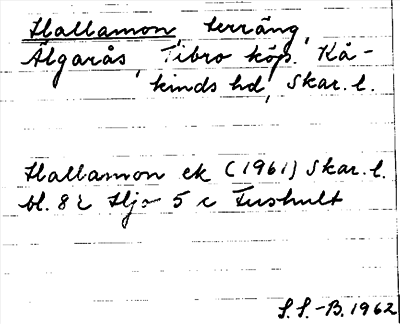 Hallamon, terräng,
Älgarås, Tibro köp. Kå-
kinds hd, Skar. l.
Hallamon ek (1961) Skar. l.
bl. 8 E Hjo 5 c Fushult
S.S.-B. 1962